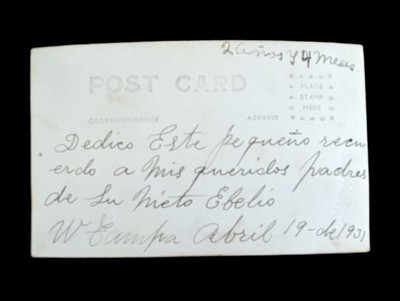 2 años y 4 meses.
POST CARD
PLACE
STAMP
HERE
CORRESPONDENCE
ADDRESS
Dedico Este pequeño recu
erdo a Mis queridos padres
de Su Nieto Ebelio
W Tampa Abril 19-de 1931